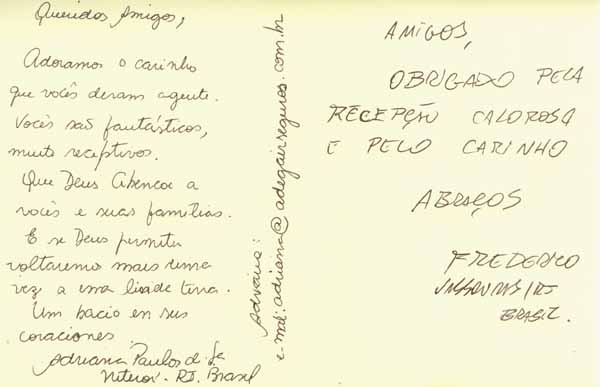 Queridos Amigos,
Adoramos o carinho
que vocês deram agente.
Vocês são fantásticos,
muito receptivos.
Que Deus Abencoe a
vocês e suas famílias.
E se Deus permitir
voltaremos mais uma
vez a essa linda terra.
Um bacio en sus
coraciones
Adriana Paulos de Sá
Niterói - RJ. Brasil
Adriana:
e-mail: adriana@adegairseguros.com.br
AMIGOS,
OBRIGADO PELA
RECEPÇÃO CALOROSA
E PELO CARINHO
ABRAÇOS
FREDERICO
VASSOURAS/RJ
BRASIL.